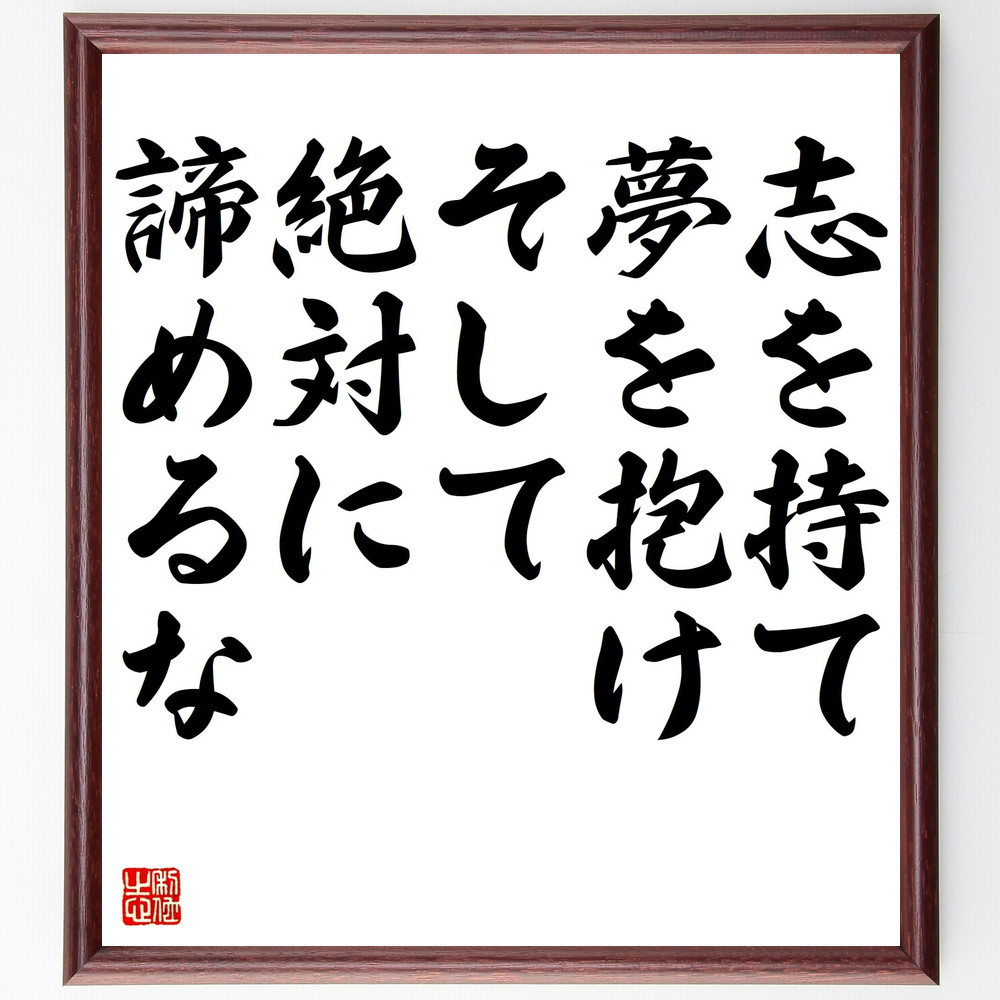 志を持て
夢を抱け
そして
絶対に
諦めるな